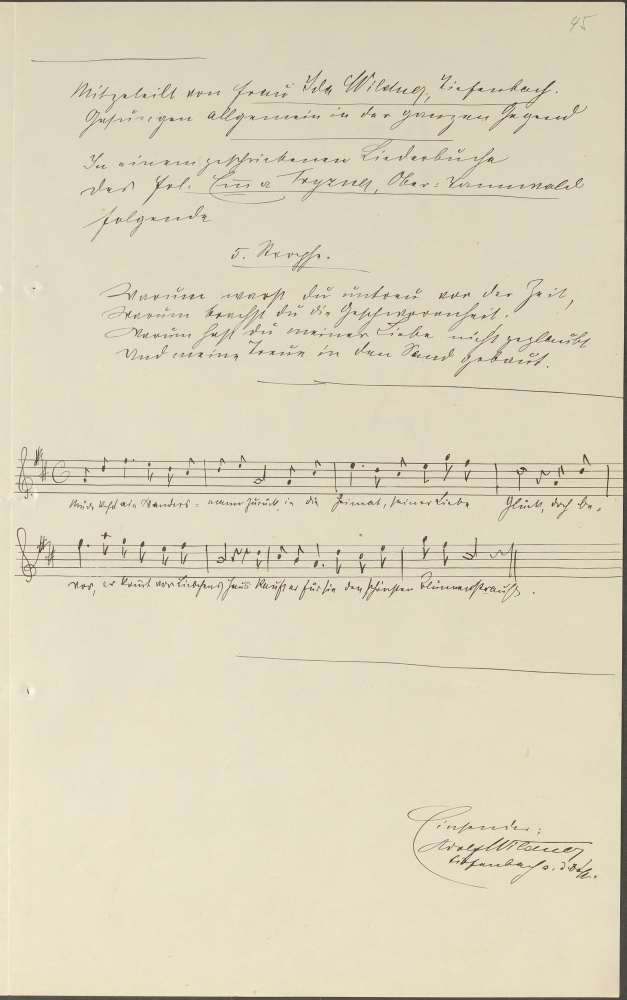 45
Mitgeteilt von Frau Ida Wildner, Tiefenbach.
Gesungen allgemein in der ganzen Gegend
In einem geschriebenen Liederbuche
des Frl. Emma, Ober-Tannwald
folgende
5. Strophe.
Warum warst du untreu vor der Zeit,
Warum brachst du die Geschworenheit.
Warum hast du meiner Liebe nicht geglaubt
Und meine Treue in den Sand gebaut.
Müde kehrt ein Wanders-mann zurück in die Heimat, seiner Liebe Glück, doch be-
vor, er kommt vor Liebchens Haus kauft er für sie den schönsten Blumenstrauß.
Einsender:
Adolf Wildner
Tiefenbach a. d.